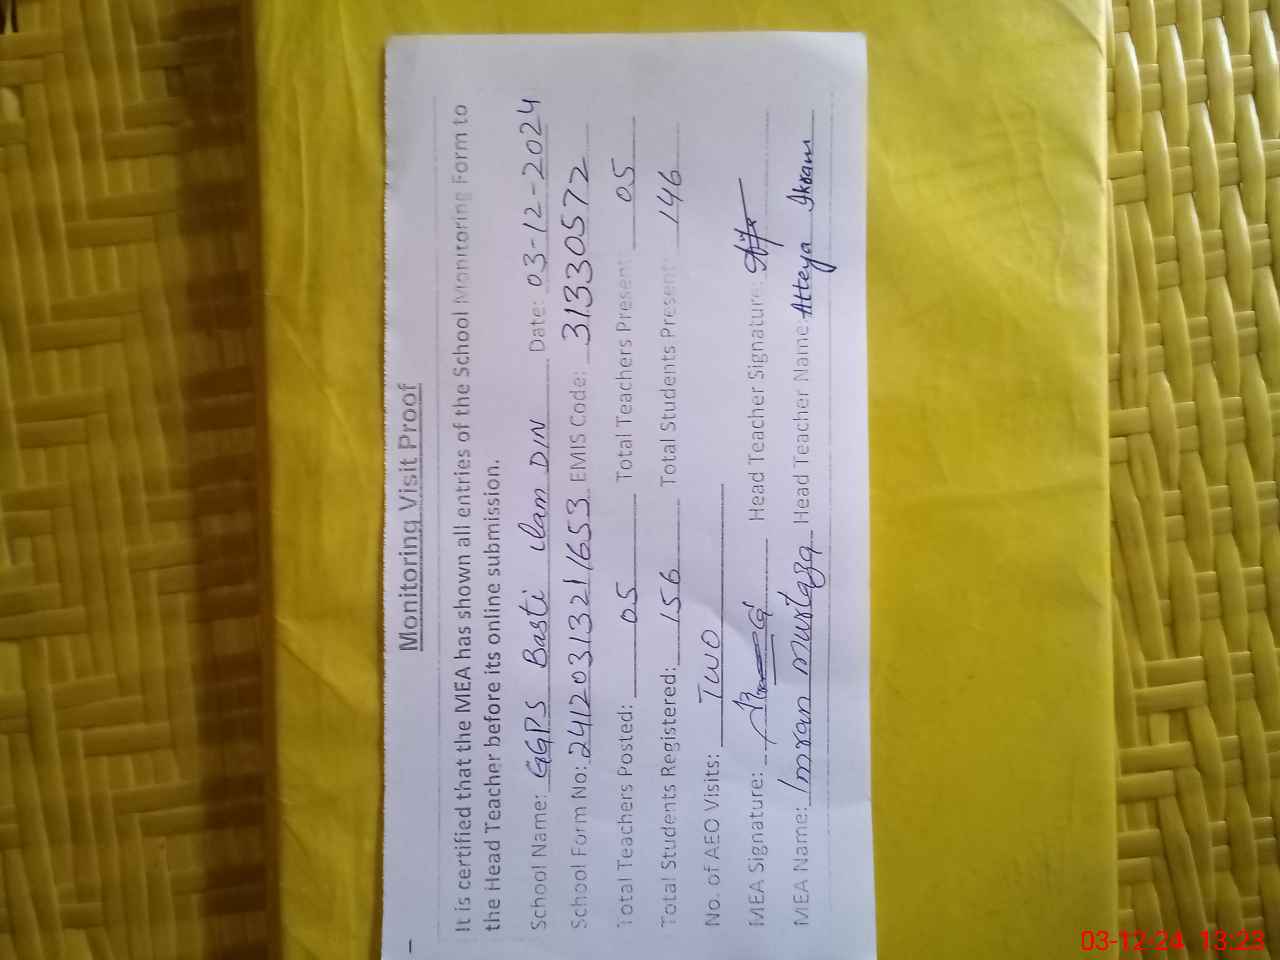 Monitoring Visit Proof
It is certified that the MEA has shown all entries of the School Monitoring Form to
the Head Teacher before its online submission.
School Name: GGPS Basti ilam DIN Date: 03-12-2024
School Form No: 24120313211653 EMIS Code: 31330572
Total Teachers Posted: 05 Total Teachers Present: 05
Total Students Registered: 156 Total Students Present: 146
No. of AEO Visits: Two
MEA Signature: Head Teacher Signature:
MEA Name: Imran Murtaza Head Teacher Name: Atteya Ikram
03-12-24 13:23